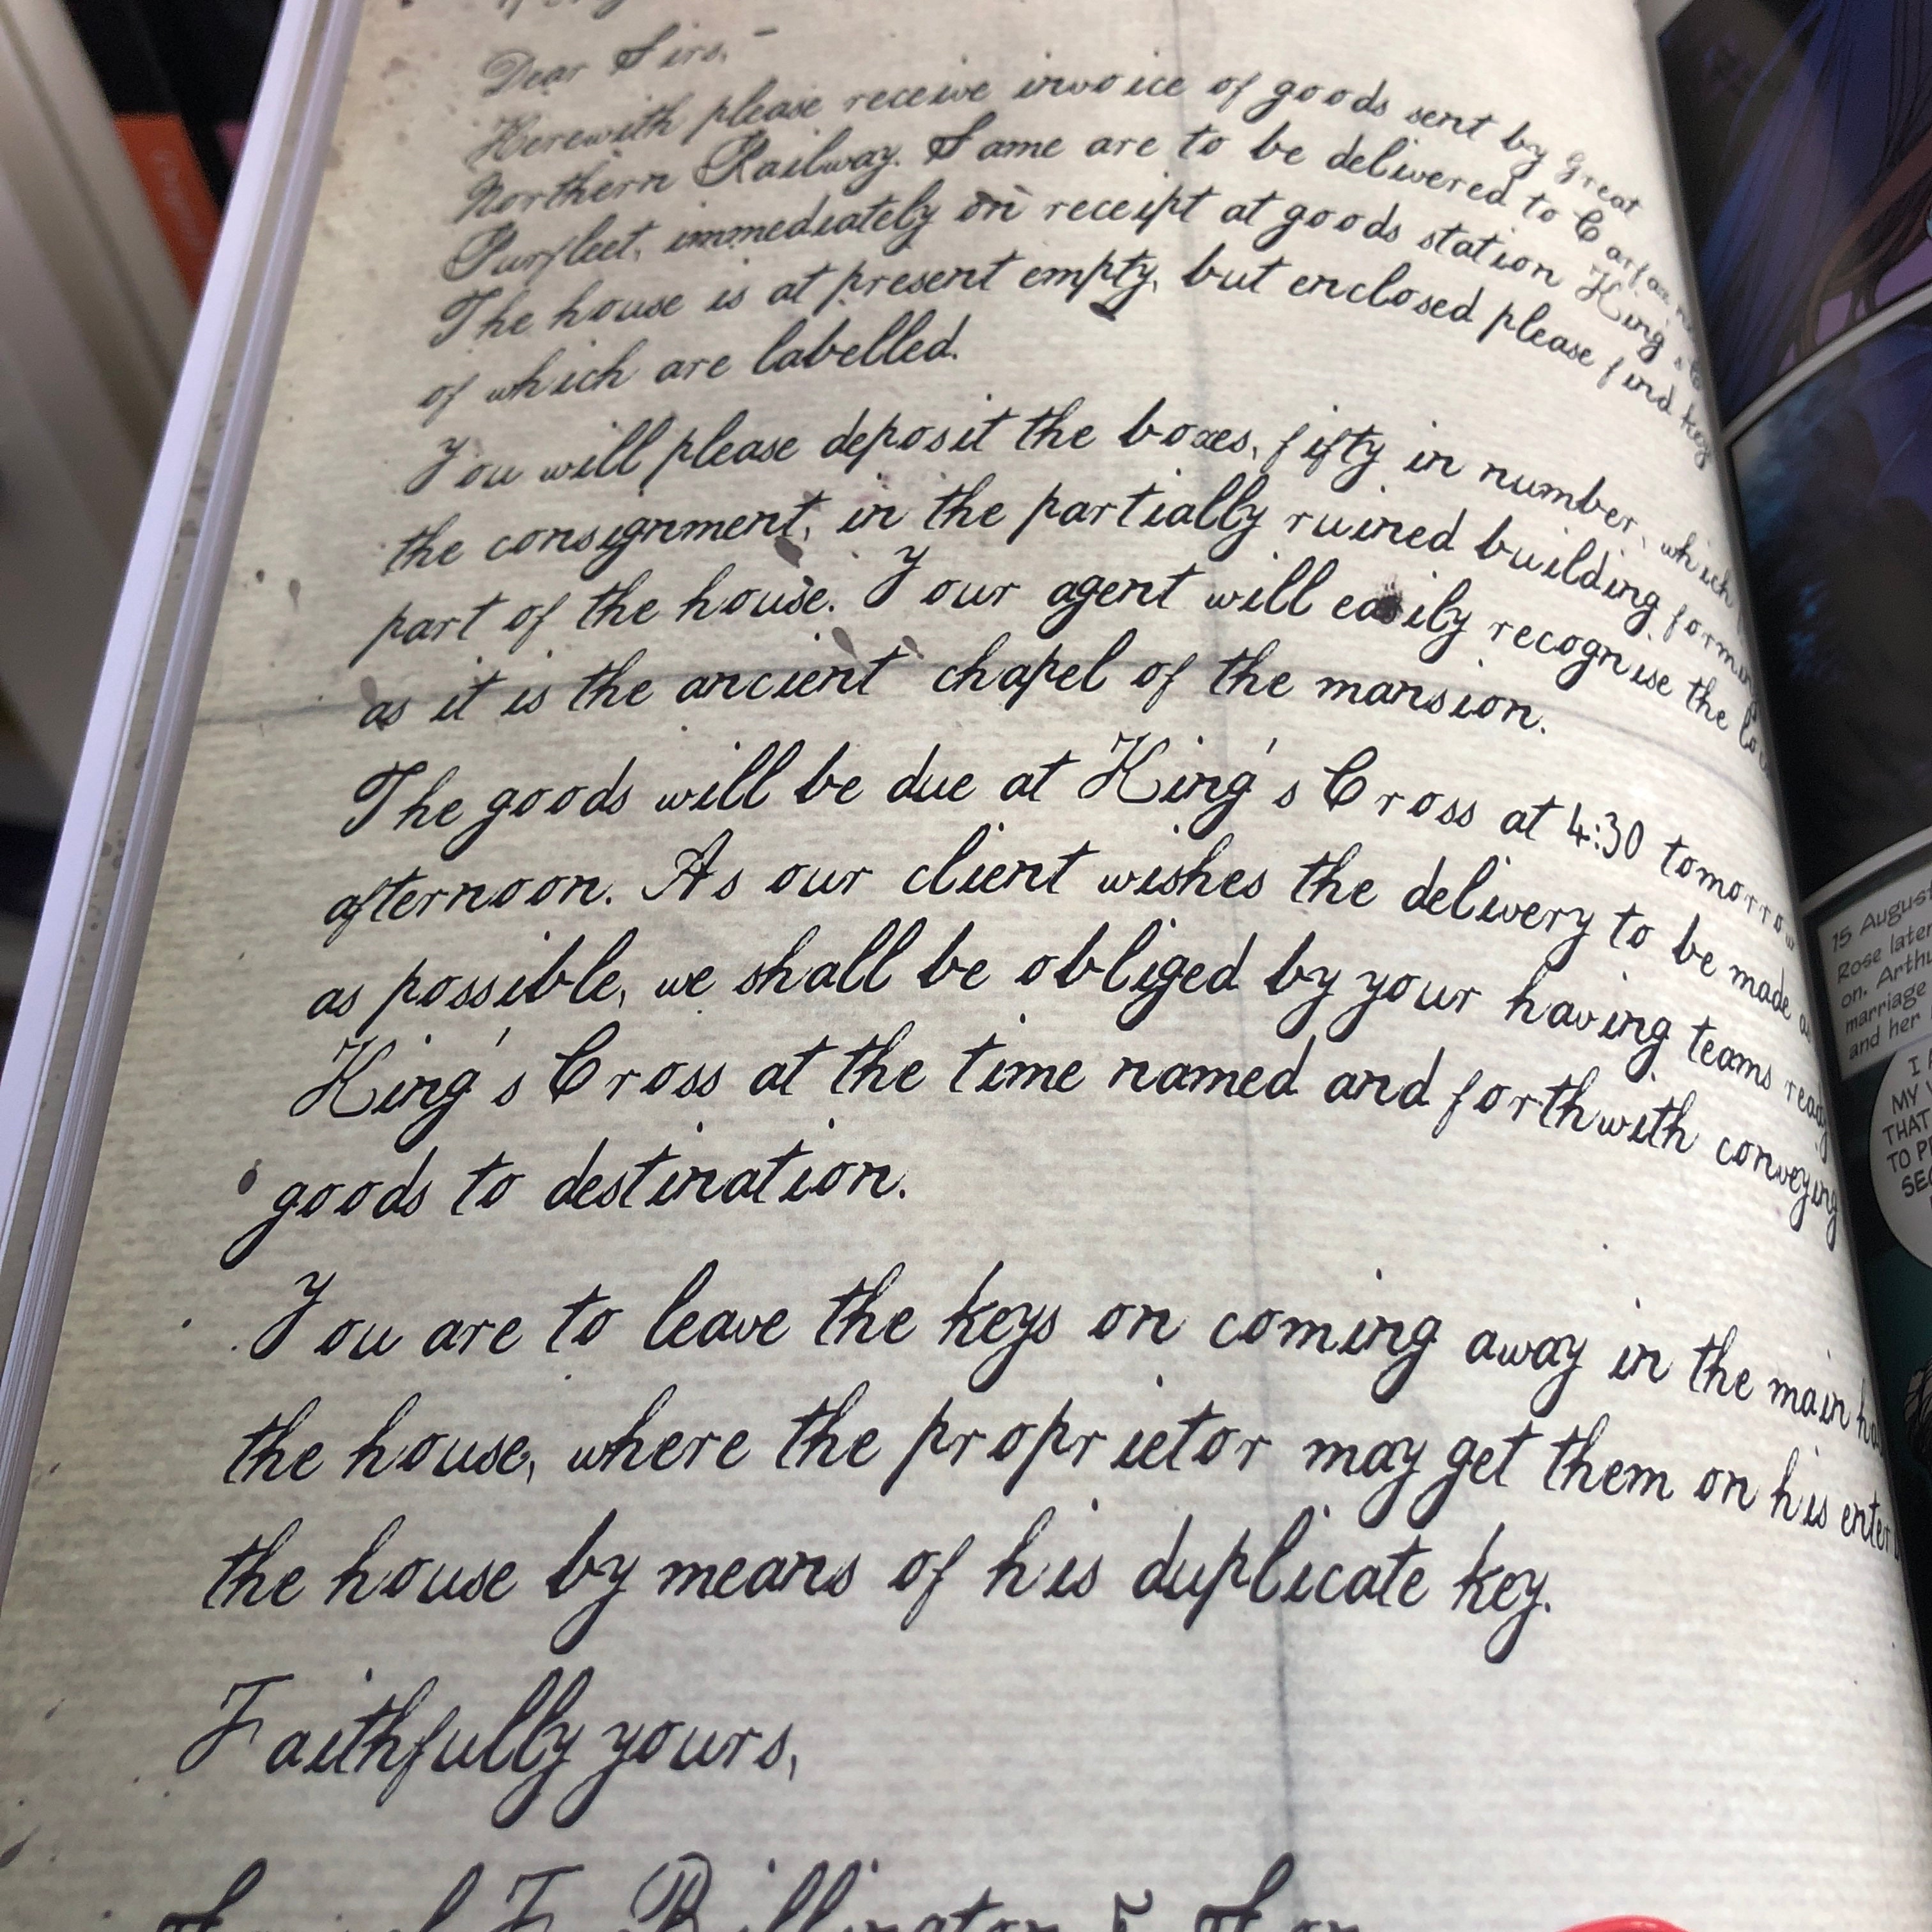 Dear Sirs, –
Herewith please receive invoice of goods sent by Great
Northern Railway. Same are to be delivered to Carfax
Purfleet, immediately on receipt at goods station King's
The house is at present empty, but enclosed please find key
of which are labelled.
You will please deposit the boxes, fifty in number, which
the consignment, in the partially ruined building forming
part of the house. Your agent will easily recognise the
as it is the ancient chapel of the mansion.
The goods will be due at King's Cross at 4:30 tomorrow
afternoon. As our client wishes the delivery to be made
as possible, we shall be obliged by your having teams ready
King's Cross at the time named and forthwith conveying
goods to destination.
You are to leave the keys on coming away in the main
the house, where the proprietor may get them on his enter
the house by means of his duplicate key.
Faithfully yours,
Samuel F. Billington & Son
15 August
Rose later
on. Arthu
marriage
and her
I
MY
THAT
TO P
SE